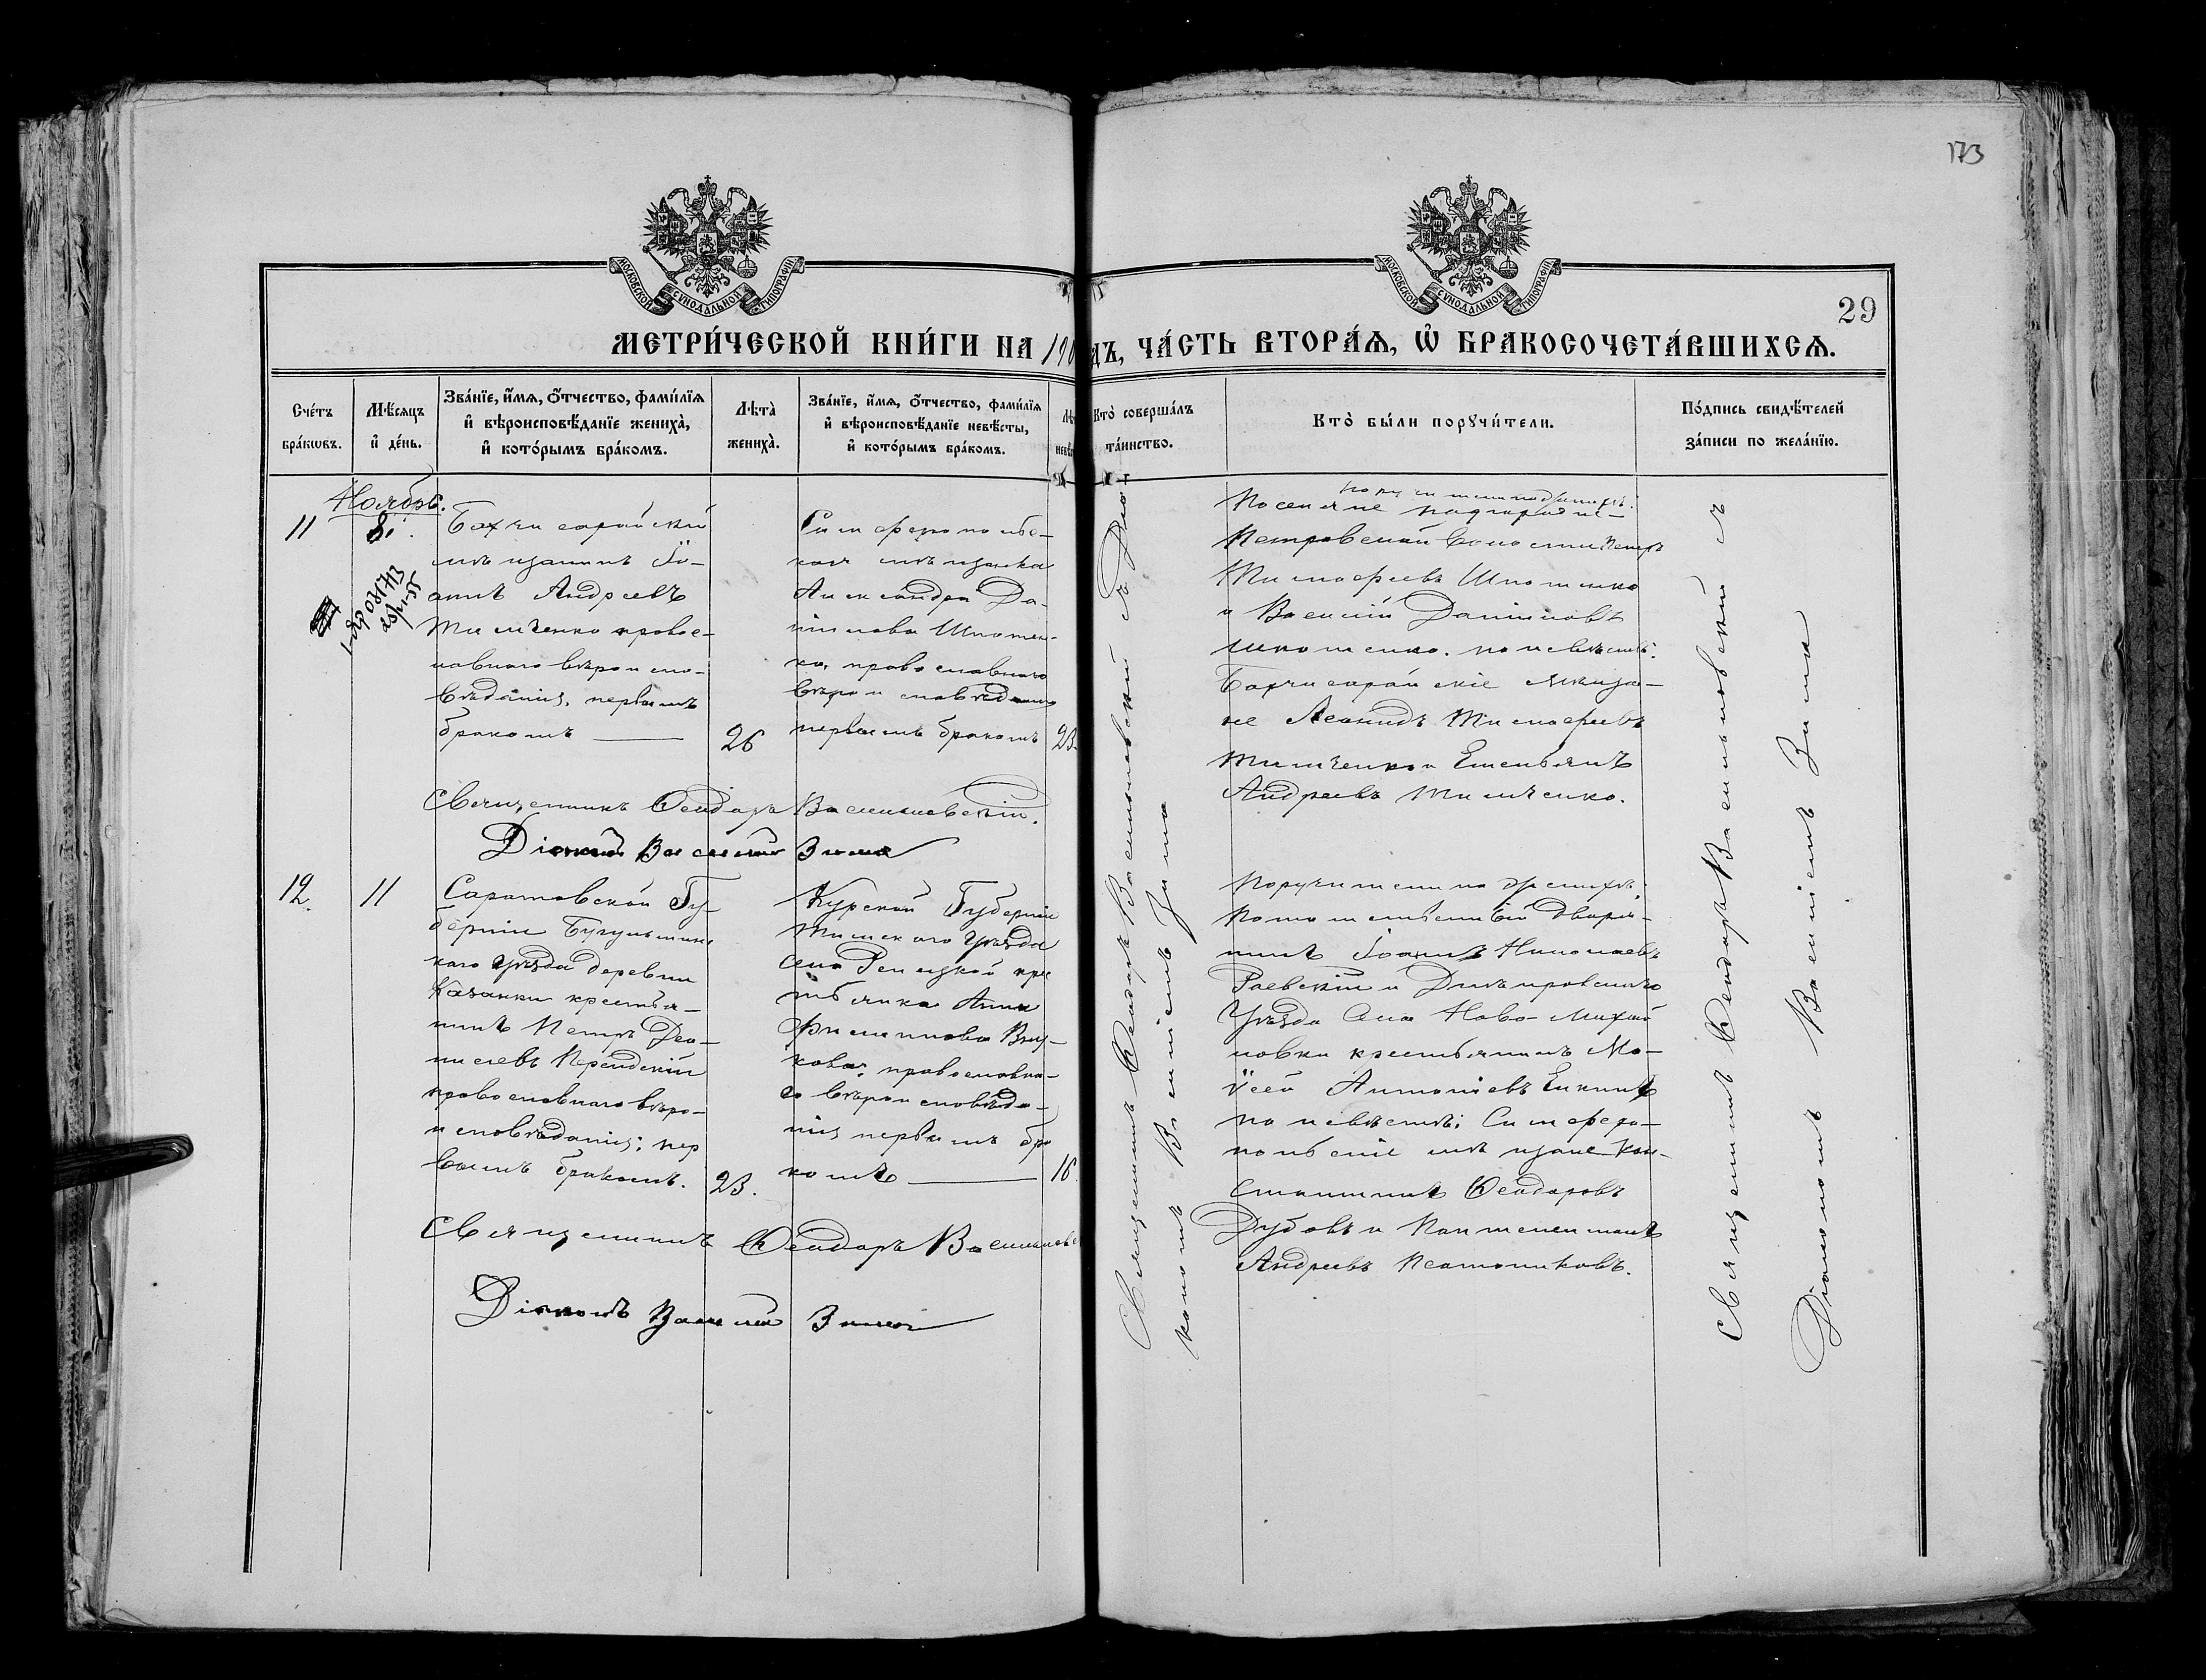 173
МОСКОВСКОЙ СѴНОДАЛЬНОЙ ТИПОГРАФІИ
МОСКОВСКОЙ СѴНОДАЛЬНОЙ ТИПОГРАФІИ
29
МЕТРИ́ЧЕСКОЙ КНИ́ГИ НА 190 ДЪ, ЧА́СТЬ ВТОРА́Ѧ, Ѽ БРАКОСОЧЕТА́ВШИХСѦ.
Сче́тъ
бра́кѡвъ.
Мѣ́сѧцъ
и҆ де́нь.
Зва́нїе, и҆́мѧ, ѻ҆́тчество, фами́лїѧ
и҆ вѣроисповѣ́данїе жениха̀,
и҆ кото́рымъ бра́комъ.
Лѣта̀
жениха̀.
Зва́нїе, и҆́мѧ, ѻ҆́тчество, фами́лїѧ
и҆ вѣроисповѣ́данїе невѣ́сты,
и҆ кото́рымъ бра́комъ.
Кто̀ соверша́лъ
та́инство.
Кто̀ бы́ли порꙋчи́тели.
По́дпись свидѣ́телей
за́писи по жела́нїю.
Ноябрь.
11
8.
Бахчисарайскій
мѣщанинъ Іо-
аннъ Андреевъ
Тимченко правос-
лавнаго вѣроиспо-
вѣданія, первымъ
бракомъ
26
Симферопольс-
кая мѣщанка
Александра Да-
нилова Шпотен-
ко, православнаго
вѣроисповѣданія
первымъ бракомъ
23.
Поселяне
Петровской Волости Петръ
Тимофеевъ Шпотенко
и Василій Даніиловъ
Шпотенко. по невѣстѣ:
Бахчисарайскіе мѣща-
не Леонидъ Тимофеевъ
Тимченко и Емельянъ
Андреевъ Тимченко.
Священникъ Ѳеодоръ Васильковскій.
Діаконъ Василій Зима
12.
11
Саратовской Гу-
берніи Бугульминс
каго Уѣзда деревни
Казанки крестья-
нинъ Петръ
православнаго вѣро-
исповѣданія; пер
вымъ бракомъ.
23.
Курской Губерніи
Тимскаго Уѣзда
села крес
тьянка Анна
Филиппова
кова; православна-
го вѣроисповѣда-
нія первымъ бра
комъ
16.
Поручители по женихѣ:
Потомственный дворя-
нинъ Іоаннъ Николаевъ
Раевскій и Днѣпровскаго
Уѣзда Села Ново-Михай
ловки крестьянинъ Мо-
ѵсей Антоніевъ
по невѣстѣ: Симферо-
польскіе мѣщане Кон-
стантинъ Ѳеодоровъ
Дубовъ и Пантелеимонъ
Андреевъ
Священникъ Ѳеодоръ Васильковс
Діаконъ Василій Зима
Священникъ Ѳеодоръ Васильковскій съ Діа-
кономъ Василіемъ Зима
Священникъ Ѳеодоръ Васильковскій съ
Діакономъ Василіемъ Зима